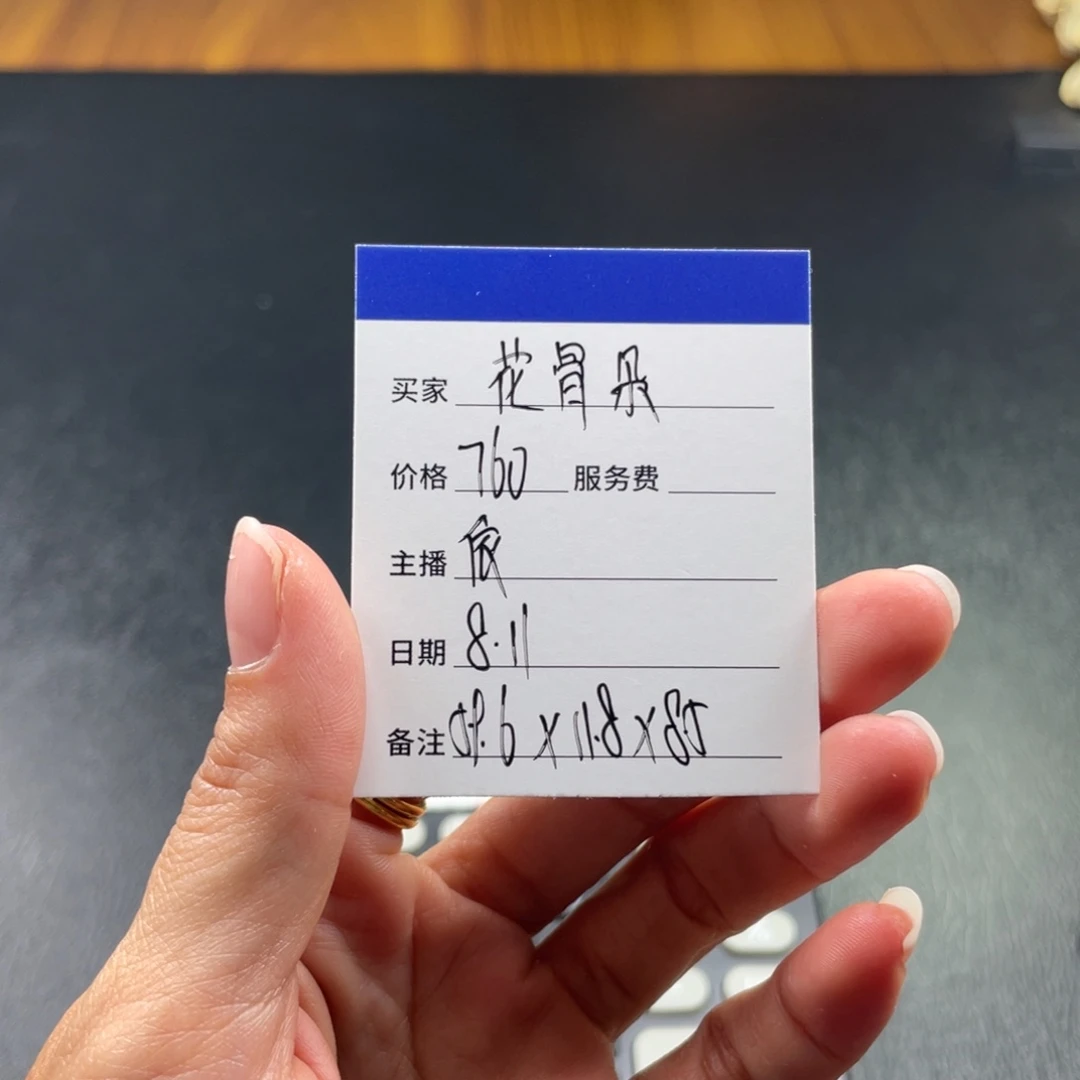 买家 花骨朵
价格 760 服务费
主播 依
日期 8.11
备注 59.6 x 11.8 x 8.5